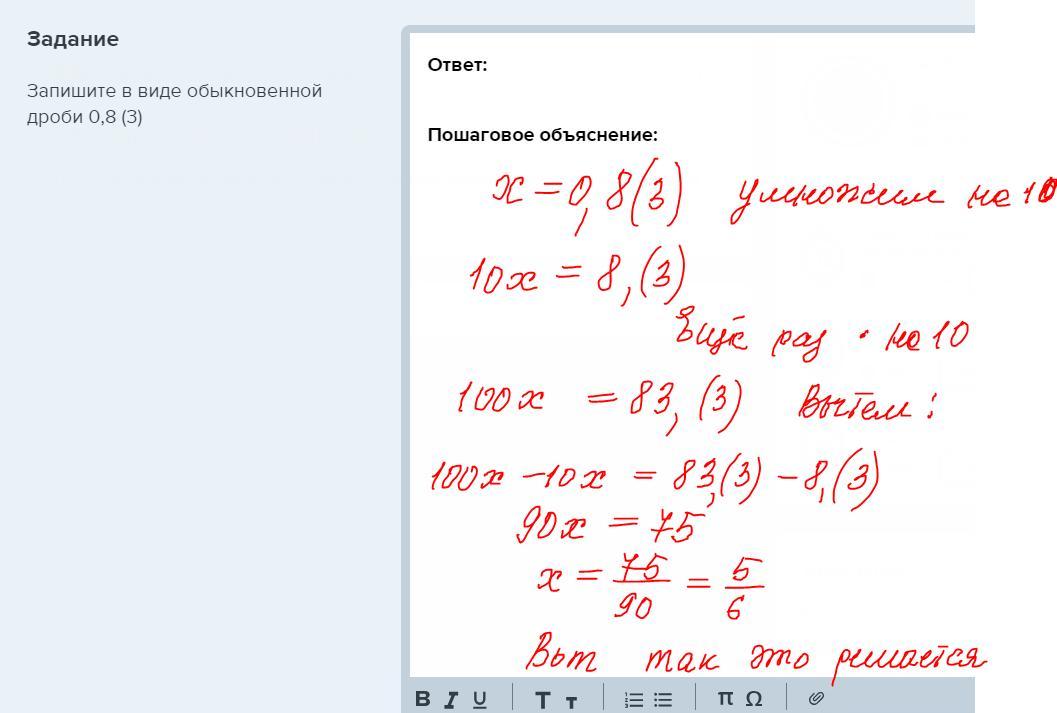 Задание
Запишите в виде обыкновенной
дроби 0,8 (3)
Ответ:
Пошаговое объяснение:
x = 0,8(3) умножим на 10
10x = 8,(3)
Ещё раз · на 10
100x = 83,(3) Вычтем:
100x - 10x = 83,(3) - 8,(3)
90x = 75
x = 75/90 = 5/6
Вот так это решается
B I U T т π Ω